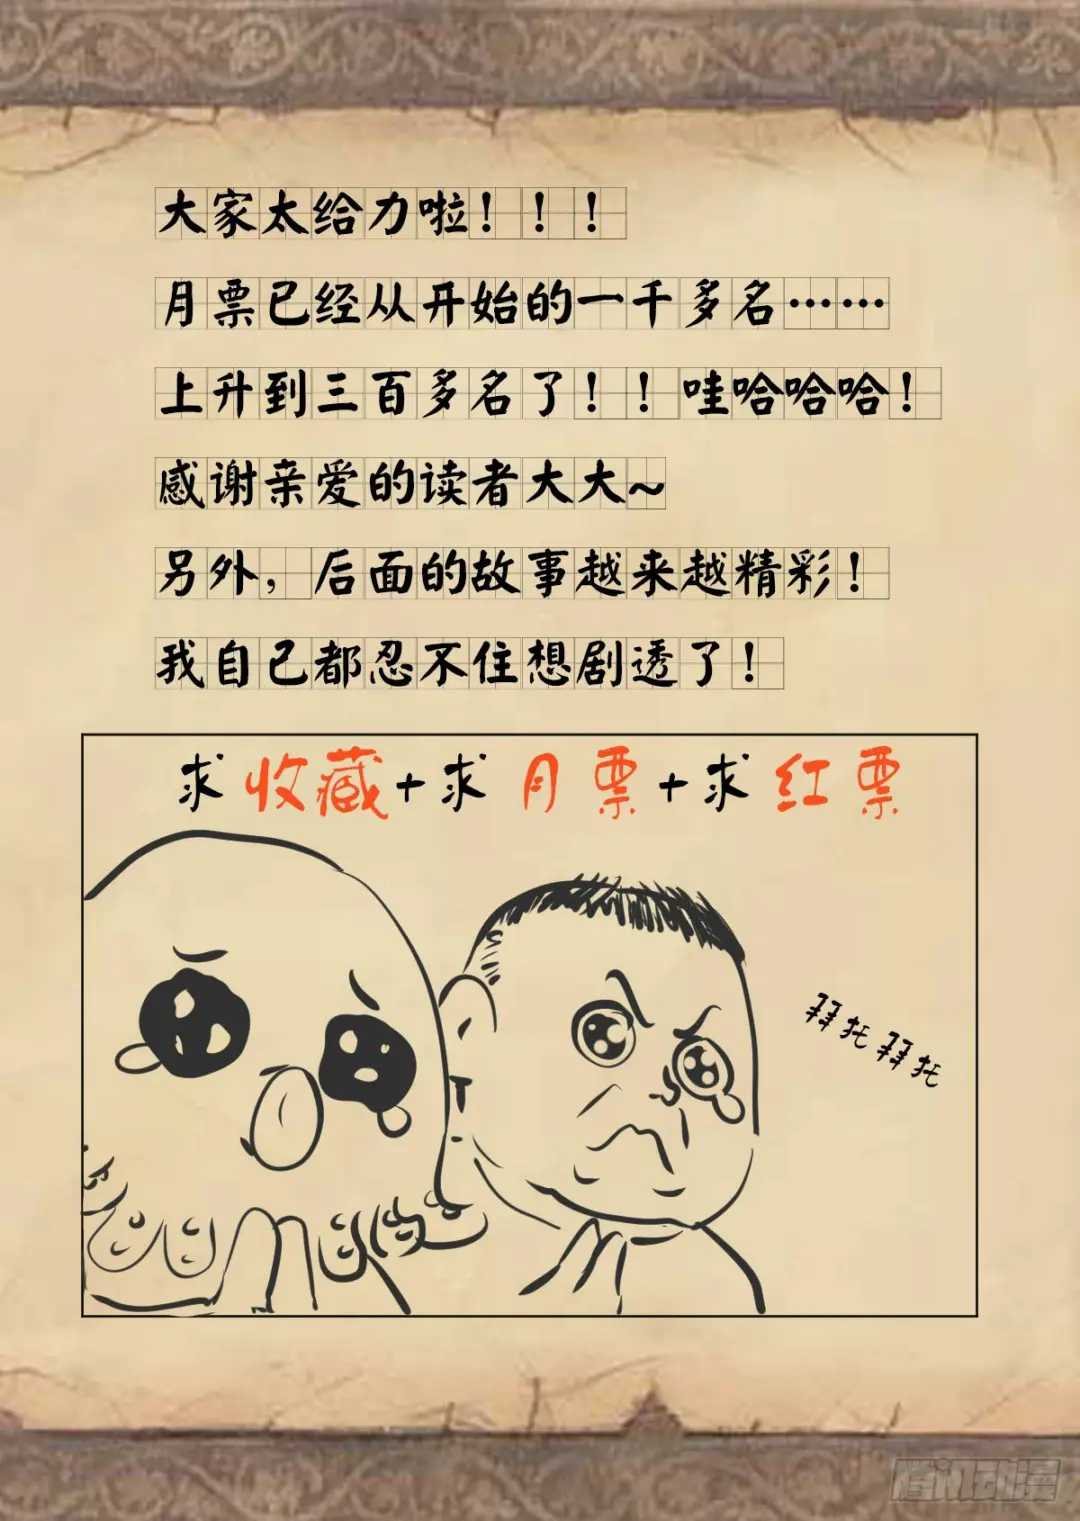 大家太给力啦！！！
月票已经从开始的一千多名……
上升到三百多名了！！哇哈哈哈！
感谢亲爱的读者大大~
另外，后面的故事越来越精彩！
我自己都忍不住想剧透了！
求收藏+求月票+求红票
拜托拜托
腾讯动漫